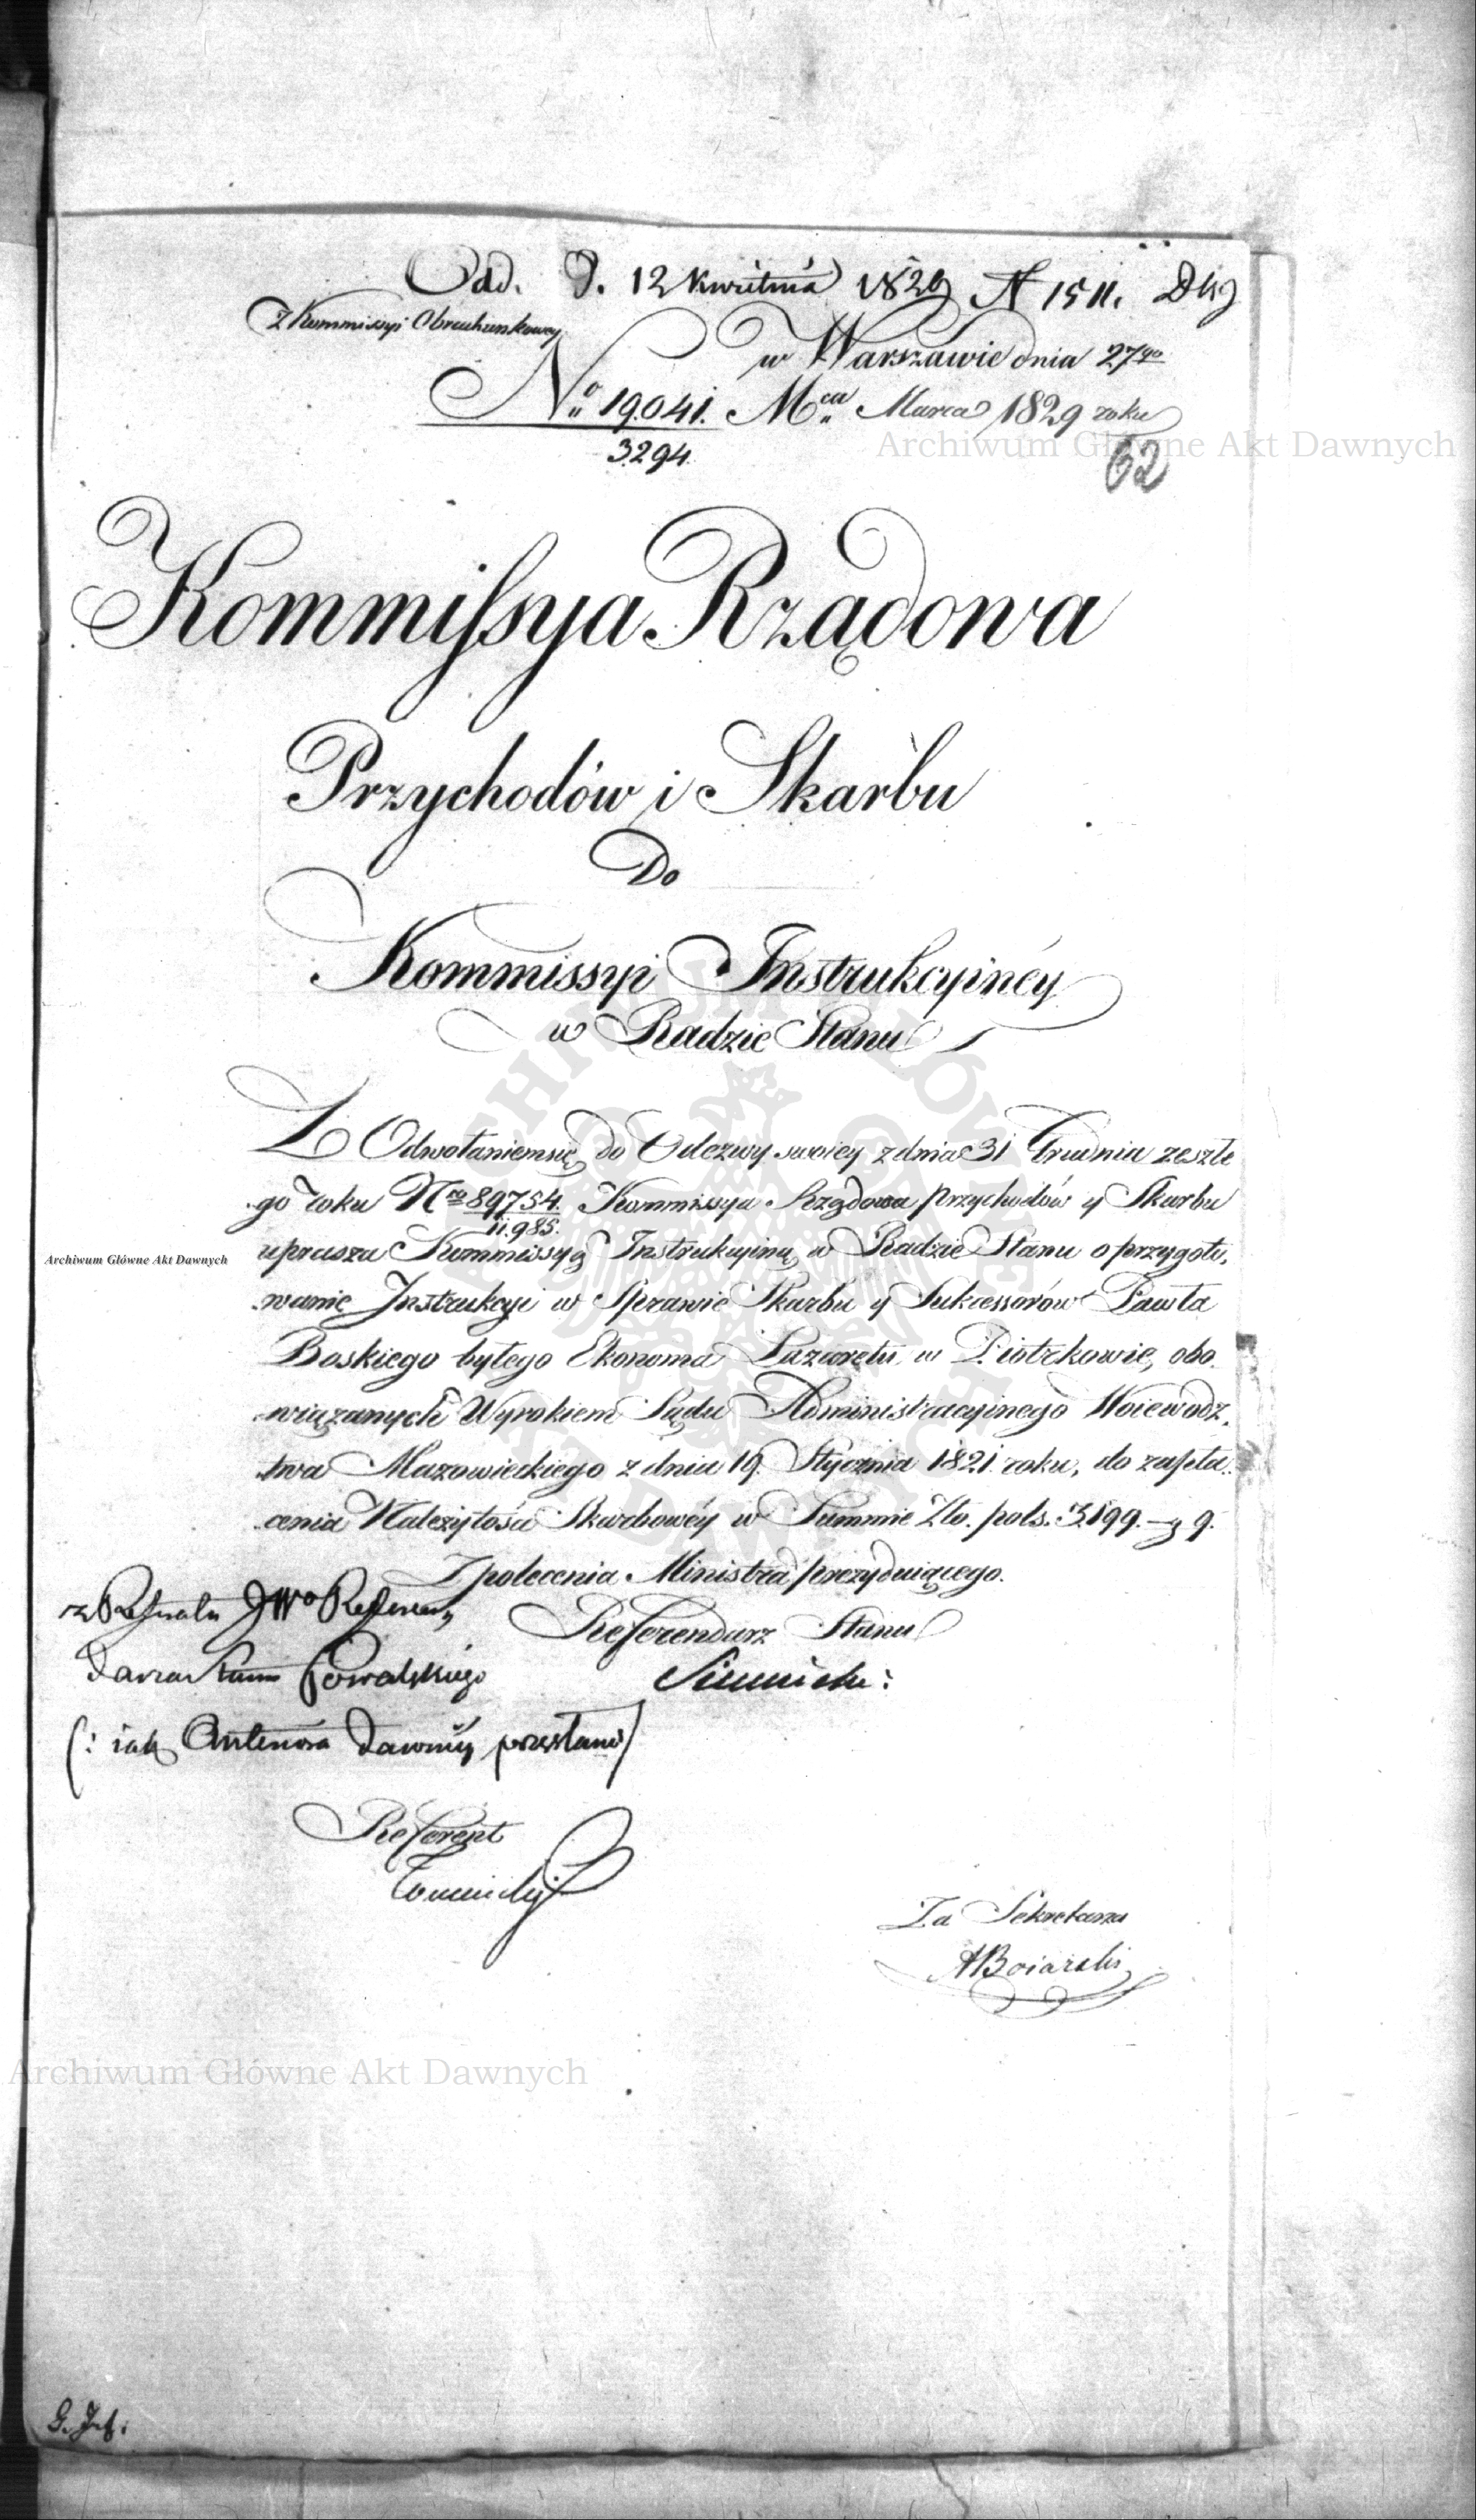 Odd. D. 12 Kwietnia 1829 N 1511.
z Kommissyi Obrachunkowey
w Warszawie dnia 27go
No 19.041. Mca Marca 1829 roku
Archiwum Główne Akt Dawnych
3294.
62
Kommissya Rządowa
Przychodów i Skarbu
Do
Kommissyi Instrukcyinéy
w Radzie Stanu
Z Odwołaniem się do Odezwy swoiey z dnia 31 Grudnia zeszłe
go roku Nro 89754. Kommissya Rządowa Przychodów y Skarbu
11.985.
uprasza Kommissyą Instrukcyiną w Radzie Stanu o przygoto,
Archiwum Główne Akt Dawnych
wanie Instrukcyi w Sprawie Skarbu y Sukcessorów Pawła
Boskiego byłego Ekonoma Lazaretu w Piotrkowie, obo
wiązanych Wyrokiem Sądu Administracyinego Woiewodz,
twa Mazowieckiego z dnia 19. Stycznia 1821 roku, do zapła,
cenia Należytości Skarbowéy w Summie Zło. pols. 3199.- g 9.
Z polecenia Ministra prezyduiącego.
Referendarz Stanu
z
Stanu Kowalskiego
(: iak Antenora dawniéy przesłano)
Referent
Za Sekretarza
ABoiarski
Archiwum Główne Akt Dawnych